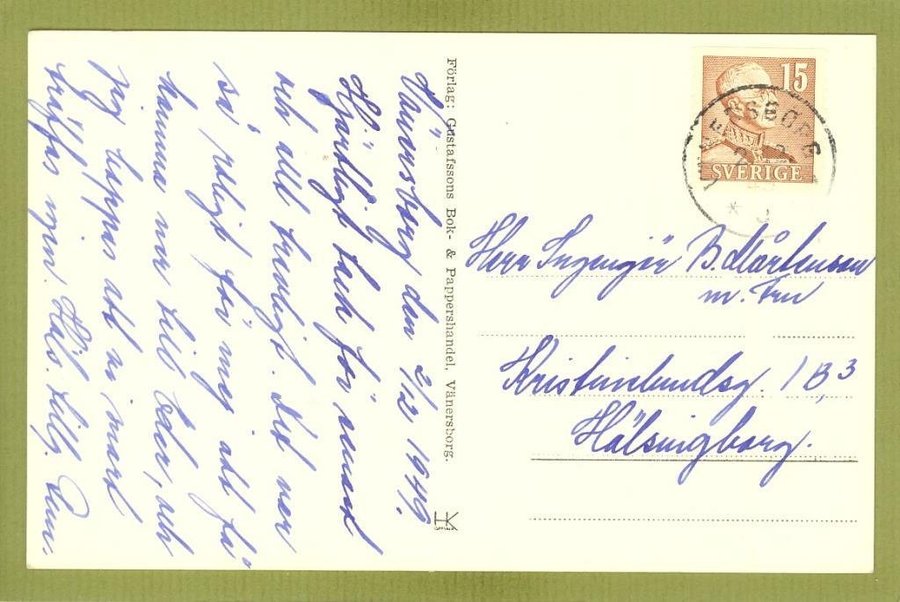 Vänersborg den 2/12 1946.
Hjärtligt tack för senast
och allt trevligt. Det var
så roligt för mig att få
komma ner till Eder, och
jag hoppas att vi snart
träffas igen. Häls. tillg.
Förlag: Gustafssons Bok- & Pappershandel, Vänersborg.
HK
15
SVERIGE
VÄNERSBORG
Herr Ingenjör B. Mårtensson
m. Fru
Kristinelundsg. 1 B, 3
Hälsingborg.